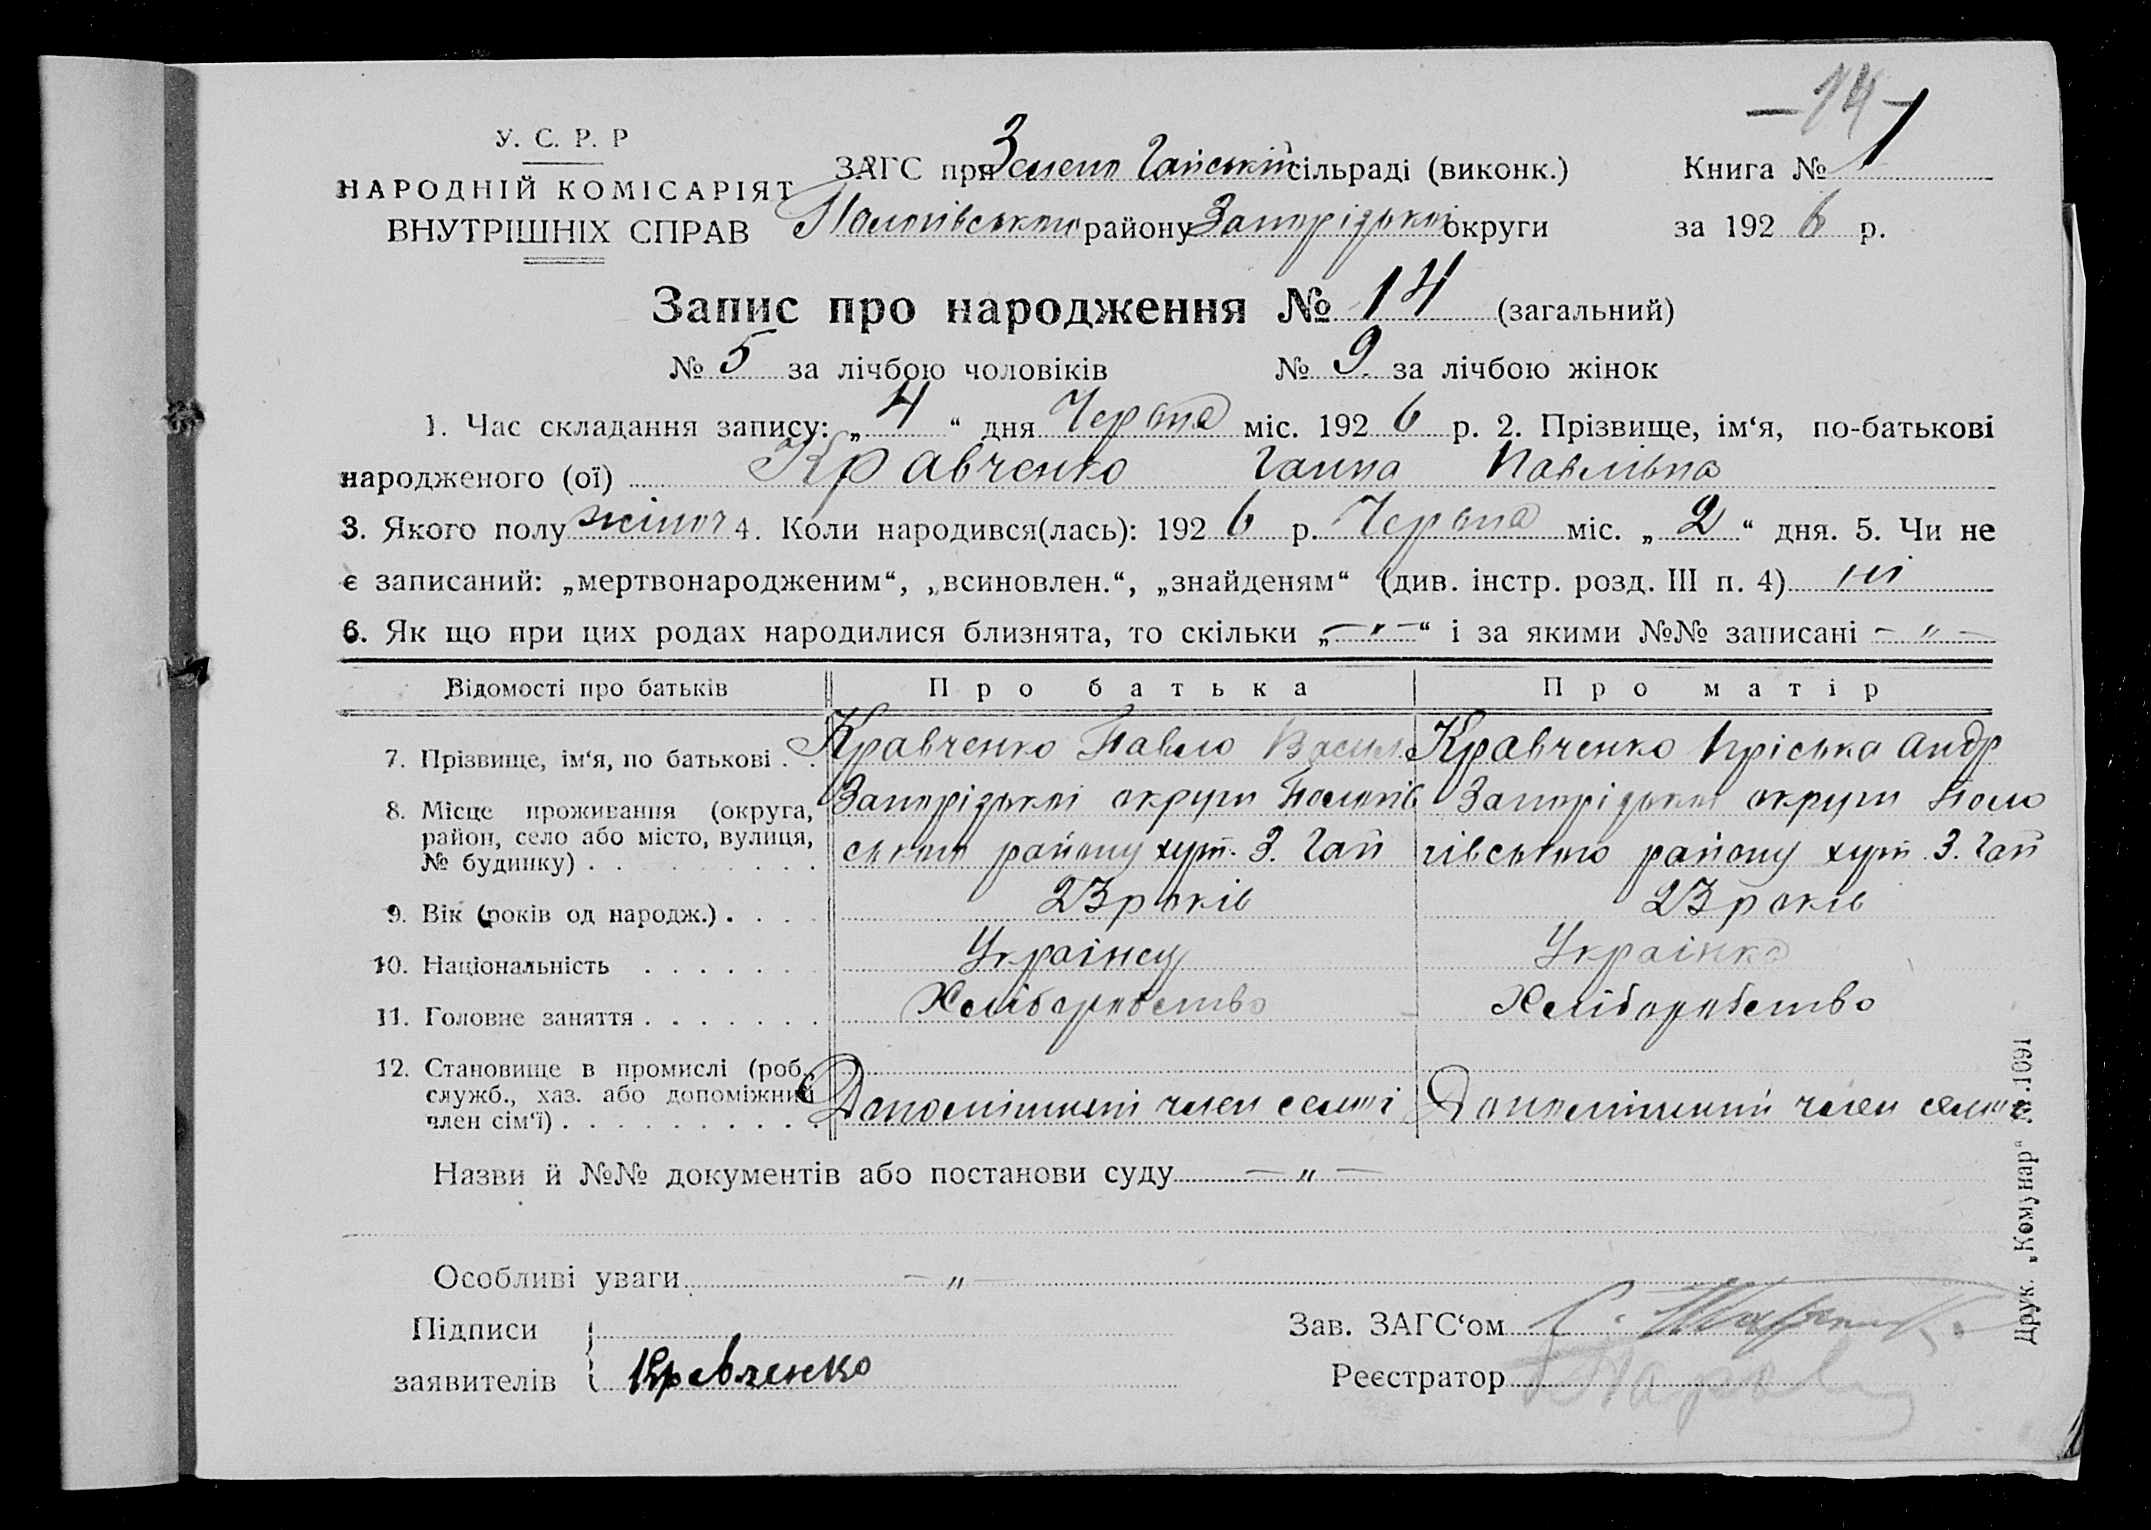 — 14 —
У. С. Р. Р
НАРОДНІЙ КОМІСАРІЯТ
ВНУТРІШНІХ СПРАВ
ЗАГС при Зелено Гайській сільраді (виконк.)
Книга № 1
Пологівського району Запорізької округи
за 192 6 р.
Запис про народження № 14 (загальний)
№ 5 за лічбою чоловіків № 9 за лічбою жінок
1. Час складання запису: „ 4 “ дня Червня міс. 192 6 р. 2. Прізвище, ім‘я, по-батькові
народженого (ої) Кравченко Ганна Павлівна
3. Якого полу жіноч 4. Коли народився(лась): 192 6 р. Червня міс. „ 2 “ дня. 5. Чи не
є записаний: „мертвонародженим“, „всиновлен.“, „знайденям“ (див. інстр. розд. III п. 4) ні
6. Як що при цих родах народилися близнята, то скільки „ — " — “ і за якими №№ записані — " —
Відомості про батьків Про батька Про матір
7. Прізвище, ім‘я, по батькові . . Кравченко Павло Васил Кравченко Пріська Андр
8. Місце проживання (округа, район, село або місто, вулиця, № будинку) . . . . . . . .
Запорізької округи Пологів
ського району хут. З. Гай
Запорізької округи Поло
гівського району хут. З. Гай
9. Вік (років од народж.) . . . . 23 років 23 років
10. Національність . . . . . . Українец Українка
11. Головне заняття . . . . . . . Хліборобство Хліборобство
12. Становище в промислі (роб., служб., хаз. або допоміжний член сім‘ї) . . . . . . . . . .
Допоміжний член семьі Допоміжний член семьі
Назви й №№ документів або постанови суду — " —
Особливі уваги — " —
Підписи
заявителів Кравченко
Зав. ЗАГС‘ом
Реєстратор
Друк. „Комунар“ №.1091